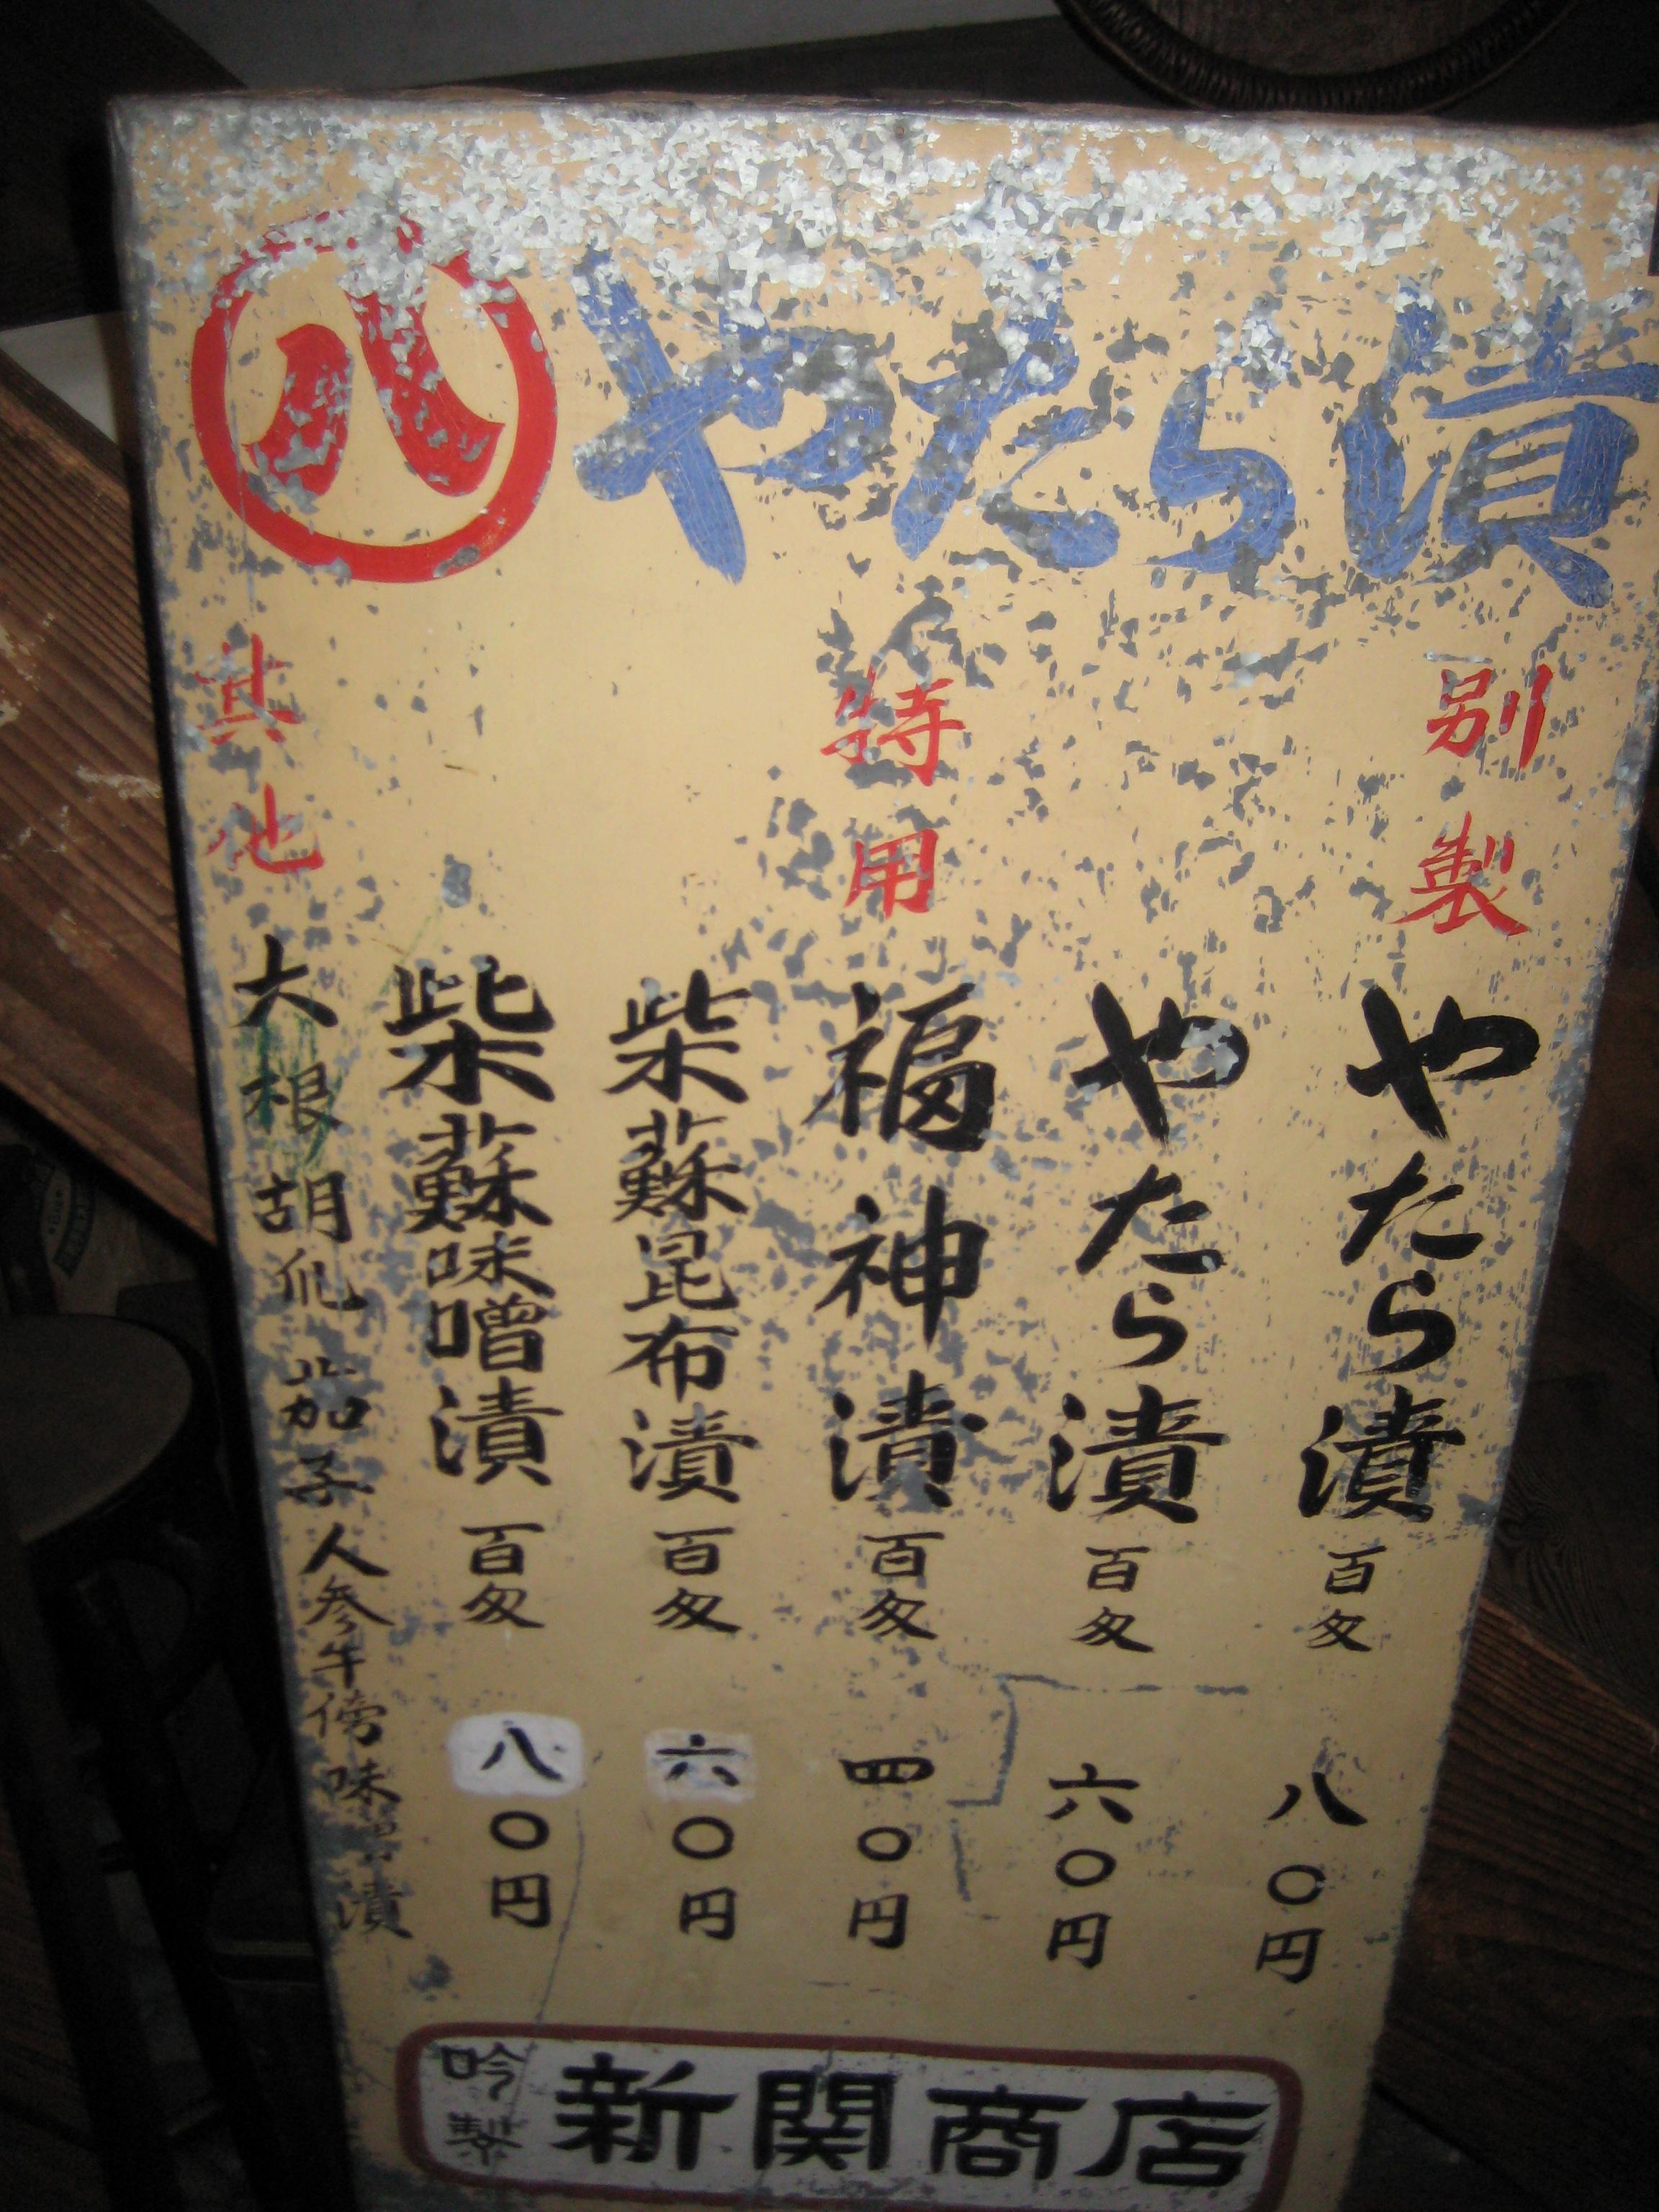 八 やたら漬
別製 やたら漬 百匁 八〇円
やたら漬 百匁 六〇円
特用 福神漬 百匁 四〇円
柴蘇昆布漬 百匁 六〇円
柴蘇味噌漬 百匁 八〇円
其他 大根 胡瓜 茄子 人参 午傍 味噌漬
吟製 新関商店